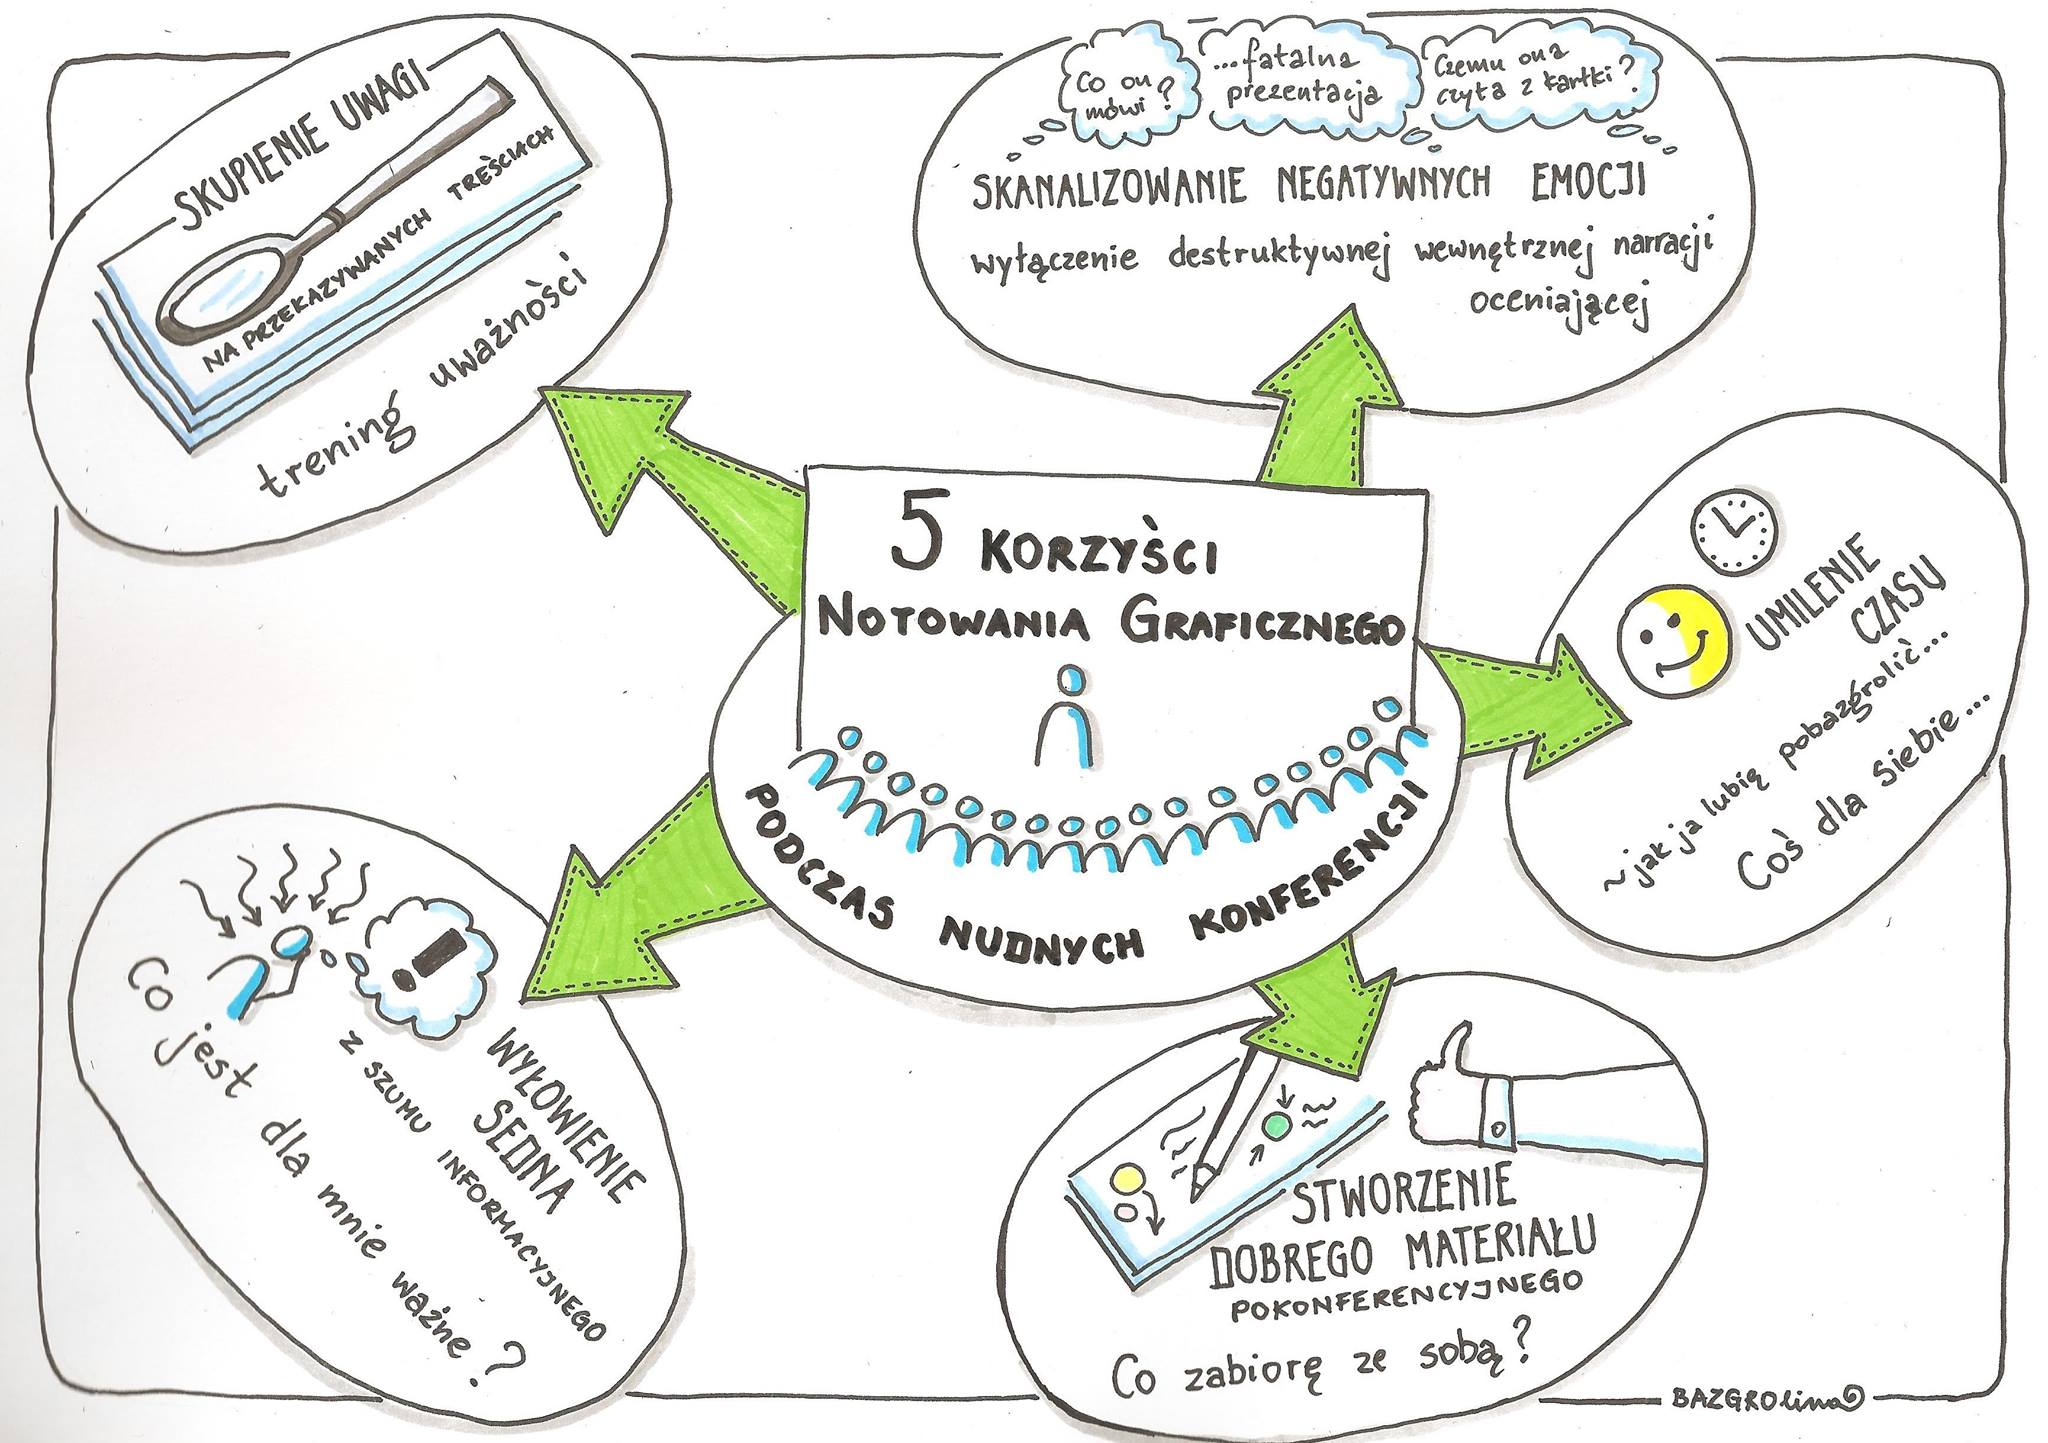 5 KORZYŚCI
NOTOWANIA GRAFICZNEGO
PODCZAS NUDNYCH KONFERENCJI
SKUPIENIE UWAGI
NA PRZEKAZYWANYCH TREŚCIACH
trening uważności
Co on
mówi?
...fatalna
prezentacja
Czemu ona
czyta z kartki?
SKANALIZOWANIE NEGATYWNYCH EMOCJI
wyłączenie destruktywnej wewnętrznej narracji
oceniającej
UMILENIE
CZASU
~jak ja lubię pobazgrolić...
Coś dla siebie...
STWORZENIE
DOBREGO MATERIAŁU
POKONFERENCYJNEGO
Co zabiorę ze sobą?
!
WYŁOWIENIE
SEDNA
Z SZUMU INFORMACYJNEGO
Co jest dla mnie ważne?
BAZGROlina